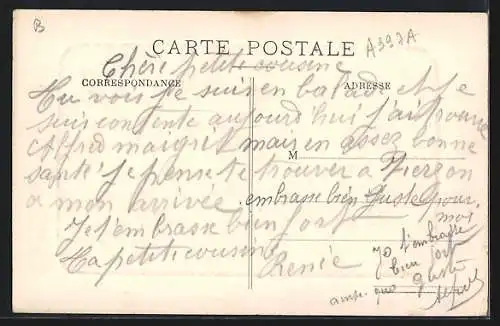 B
A397A
CARTE POSTALE
Chère petite cousine
CORRESPONDANCE
ADRESSE
Tu vois je suis en balade et je
suis contente aujourd'hui j'ai trouvé
Alfred maigrit mais en assez bonne
M
santé je pense te trouver a Vierzon
a mon arrivée. embrasse bien Guste pour
moi
Je t'embrasse bien fort
Ta petite cousine
Renée
Je t'embrasse
bien fort
Guste
Alfred